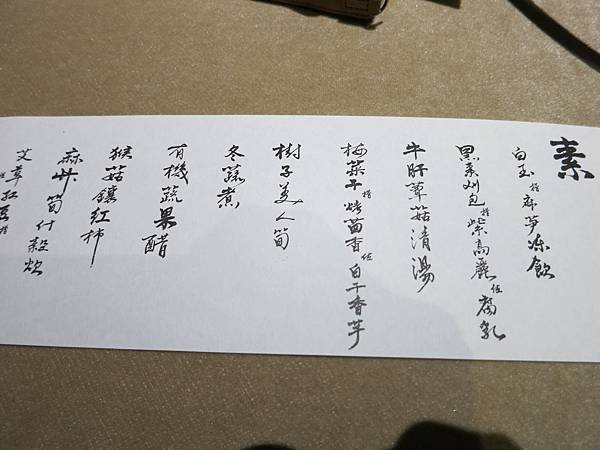 素
白玉搭麻笋冻飲
黑素刈包搭紫高麗佐腐乳
牛肝蕈菇清湯
梅菜干搭烤茴香佐白干香芋
樹子美人筍
冬蔭煮
有機蔬果醋
猴菇鑲紅柿
麻竹筍什穀炊
艾草紅豆